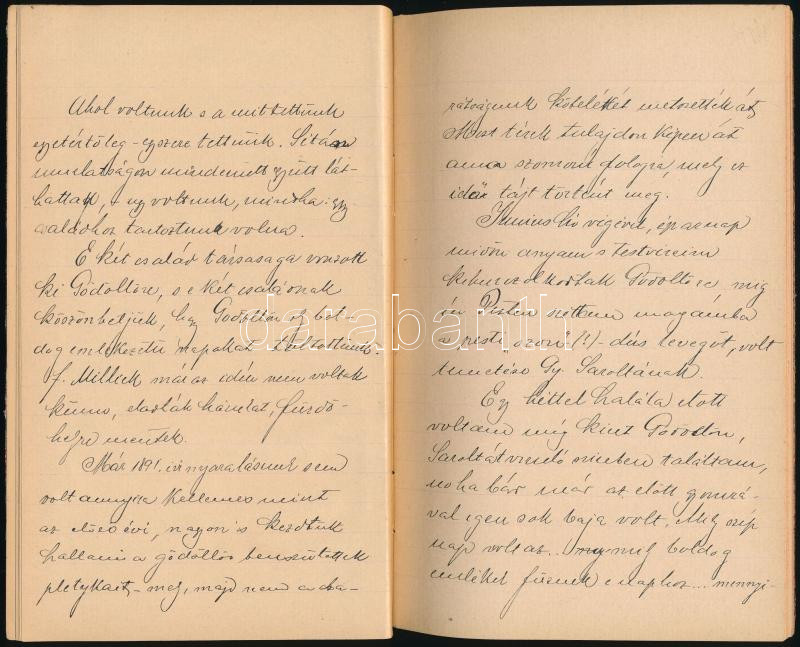 Ahol voltunk s a mit tettünk
egyetértőleg - egyszerre tettünk. Sétán
mulatságon mindenütt együtt lát-
hattak, - úgy voltunk, mintha egy
családhoz tartoztunk volna.
E két család társasága vonzott
ki Gödöllőre, s e két családnak
köszönhetjük, hogy Gödöllőn oly bol-
dog emlékezetű napokat töltöttünk.
f. Milliek már az idén nem voltak
künn, eladták házukat, fürdő-
helyre mentek.
Már 1891. évi nyaralásunk sem
volt annyira kellemes mint
az előző évi, nagyon is kezdtük
hallani a gödöllői benszülöttek
pletykáit, - mely, majd nem a ba-
rátságunk kötelékét metszették át
Most térek tulajdonképen át
ama szomorú dologra, mely ez
idő tájt történt meg.
Junius hó végével, épp aznap
midőn anyám s testvéreim
kihurczolkodtak Gödöllőre míg
én Pesten szíttam magamba
a pesti „ozon" (!) - dús levegőt, volt
temetése Gy. Saroltának.
Egy héttel halála előtt
voltam még kint Gödöllőn,
Saroltát viruló színben találtam,
noha bár már az előtt gyomrá-
val igen sok baja volt. Mily szép
nap volt az.. mily boldog
emlékek fűznek e naphoz... mennyi-
darabanth